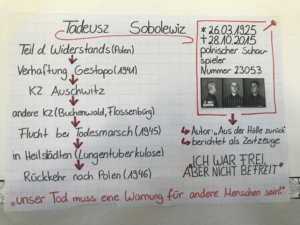 Tadeusz Sobolewiz
Teil d. Widerstands (Polen)
Verhaftung Gestapo (1941)
KZ Auschwitz
andere KZ (Buchenwald, Flossenbürg)
Flucht bei Todesmarsch (1945)
in Heilstädten (Lungentuberkulose)
Rückkehr nach Polen (1946)
* 26.03.1925
† 28.10.2015
polnischer Schau-
spieler
Nummer 23053
Autor: „Aus der Hölle zurück"
berichtet als Zeitzeuge
"ICH WAR FREI,
ABER NICHT BEFREIT"
„unser Tod muss eine Warnung für andere Menschen sein!"